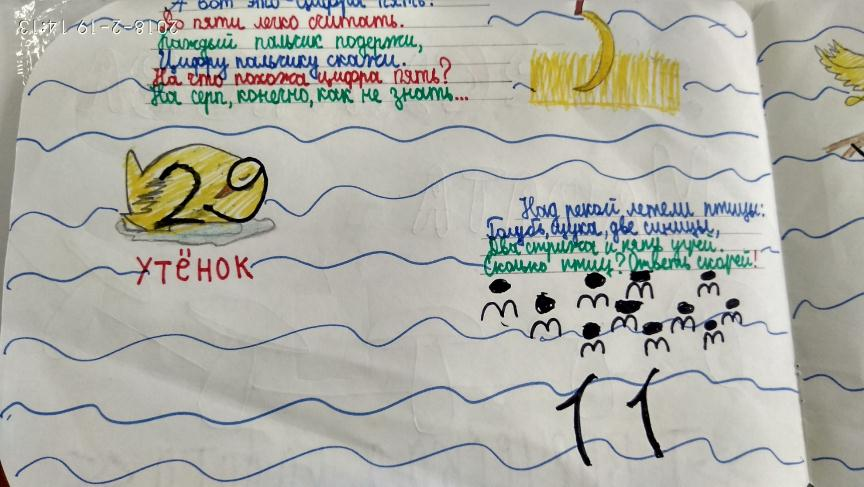 А вот это - цифра пять.
До пяти легко считать.
Каждый пальчик подержи,
Цифру пальчику скажи.
На что похожа цифра пять?
На серп, конечно, как не знать...
2018-2-19 14:13
29
УТЁНОК
Над рекой летели птицы:
Голубь, щука, две синицы,
Два стрижа и пять угрей.
Сколько птиц? Ответь скорей!
11